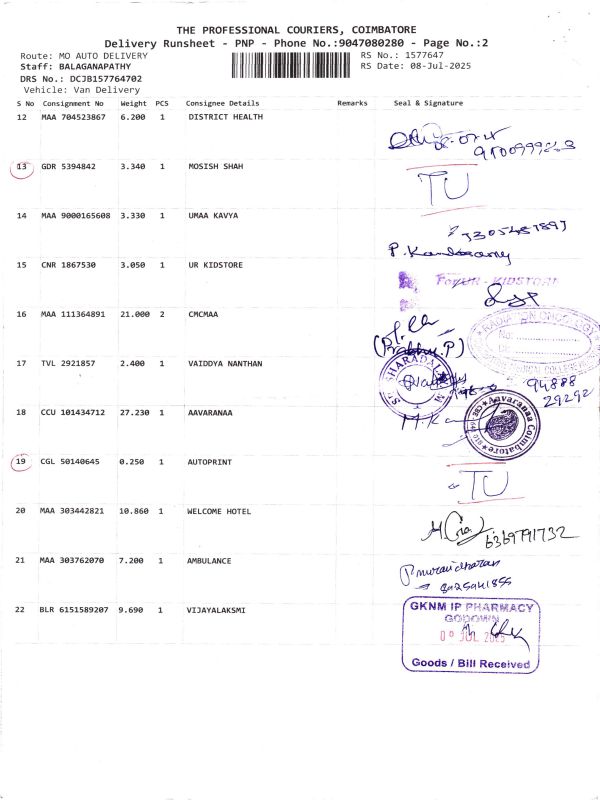 THE PROFESSIONAL COURIERS, COIMBATORE
Delivery Runsheet - PNP - Phone No.:9047080280 - Page No.:2
Route: MO AUTO DELIVERY
Staff: BALAGANAPATHY
DRS No.: DCJB157764702
Vehicle: Van Delivery
RS No.: 1577647
RS Date: 08-Jul-2025
S No Consignment No Weight PCS Consignee Details Remarks Seal & Signature
12 MAA 704523867 6.200 1 DISTRICT HEALTH
13 GDR 5394842 3.340 1 MOSISH SHAH
TU
14 MAA 9000165608 3.330 1 UMAA KAVYA
15 CNR 1867530 3.050 1 UR KIDSTORE
For UR - KIDSTORE
16 MAA 111364891 21.000 2 CMCMAA
(Prabhu.P)
RADIATION ONCOLOGY
17 TVL 2921857 2.400 1 VAIDDYA NANTHAN
94888
29292
18 CCU 101434712 27.230 1 AAVARANAA
Aavaranaa Coimbatore
19 CGL 50140645 0.250 1 AUTOPRINT
TU
20 MAA 303442821 10.860 1 WELCOME HOTEL
6369791732
21 MAA 303762070 7.200 1 AMBULANCE
P muralidharan
22 BLR 6151589207 9.690 1 VIJAYALAKSMI
GKNM IP PHARMACY
GODOWN
JUL 2025
Goods / Bill Received